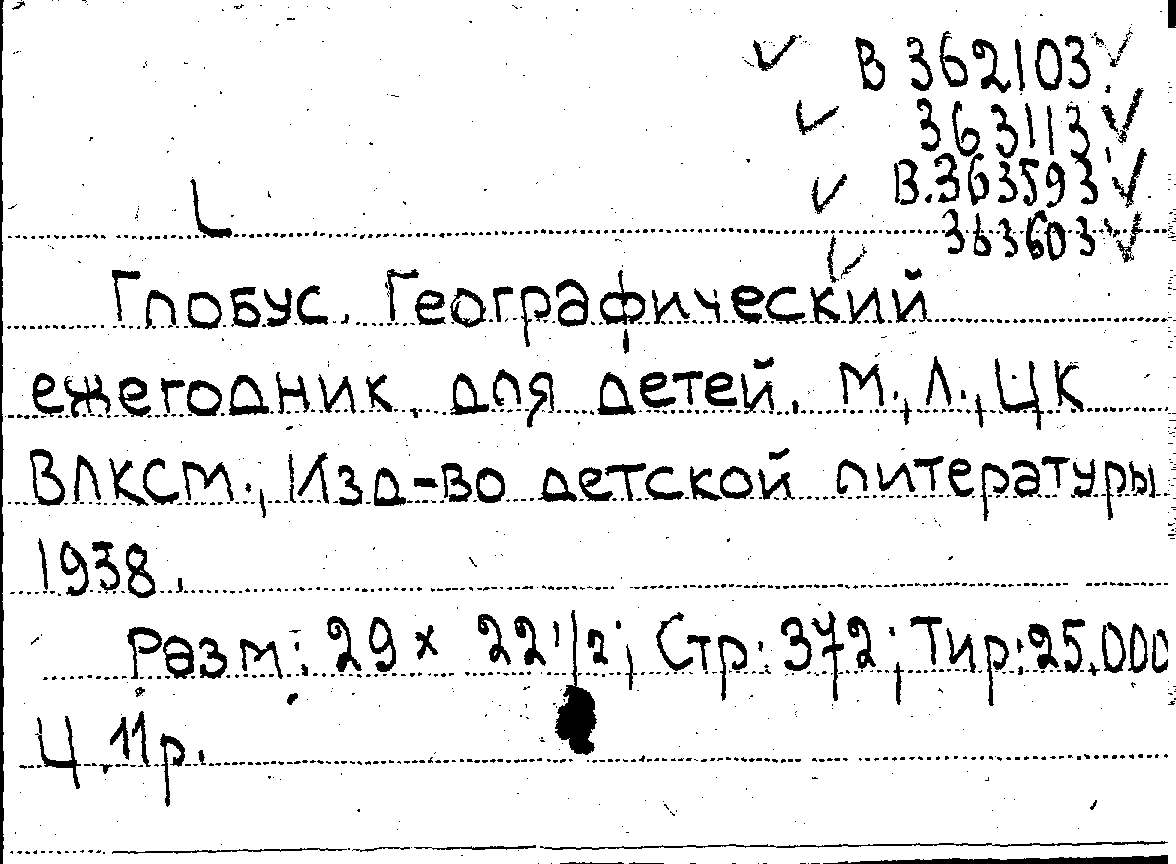 В 362103
363113
В.363593
363603
Глобус. Географический
ежегодник. для детей. М., Л., ЦК
ВЛКСМ., Изд-во детской литературы
1938.
Разм: 29 х 22 1/2; Стр: 372; Тир: 25.000
Ц. 11р.